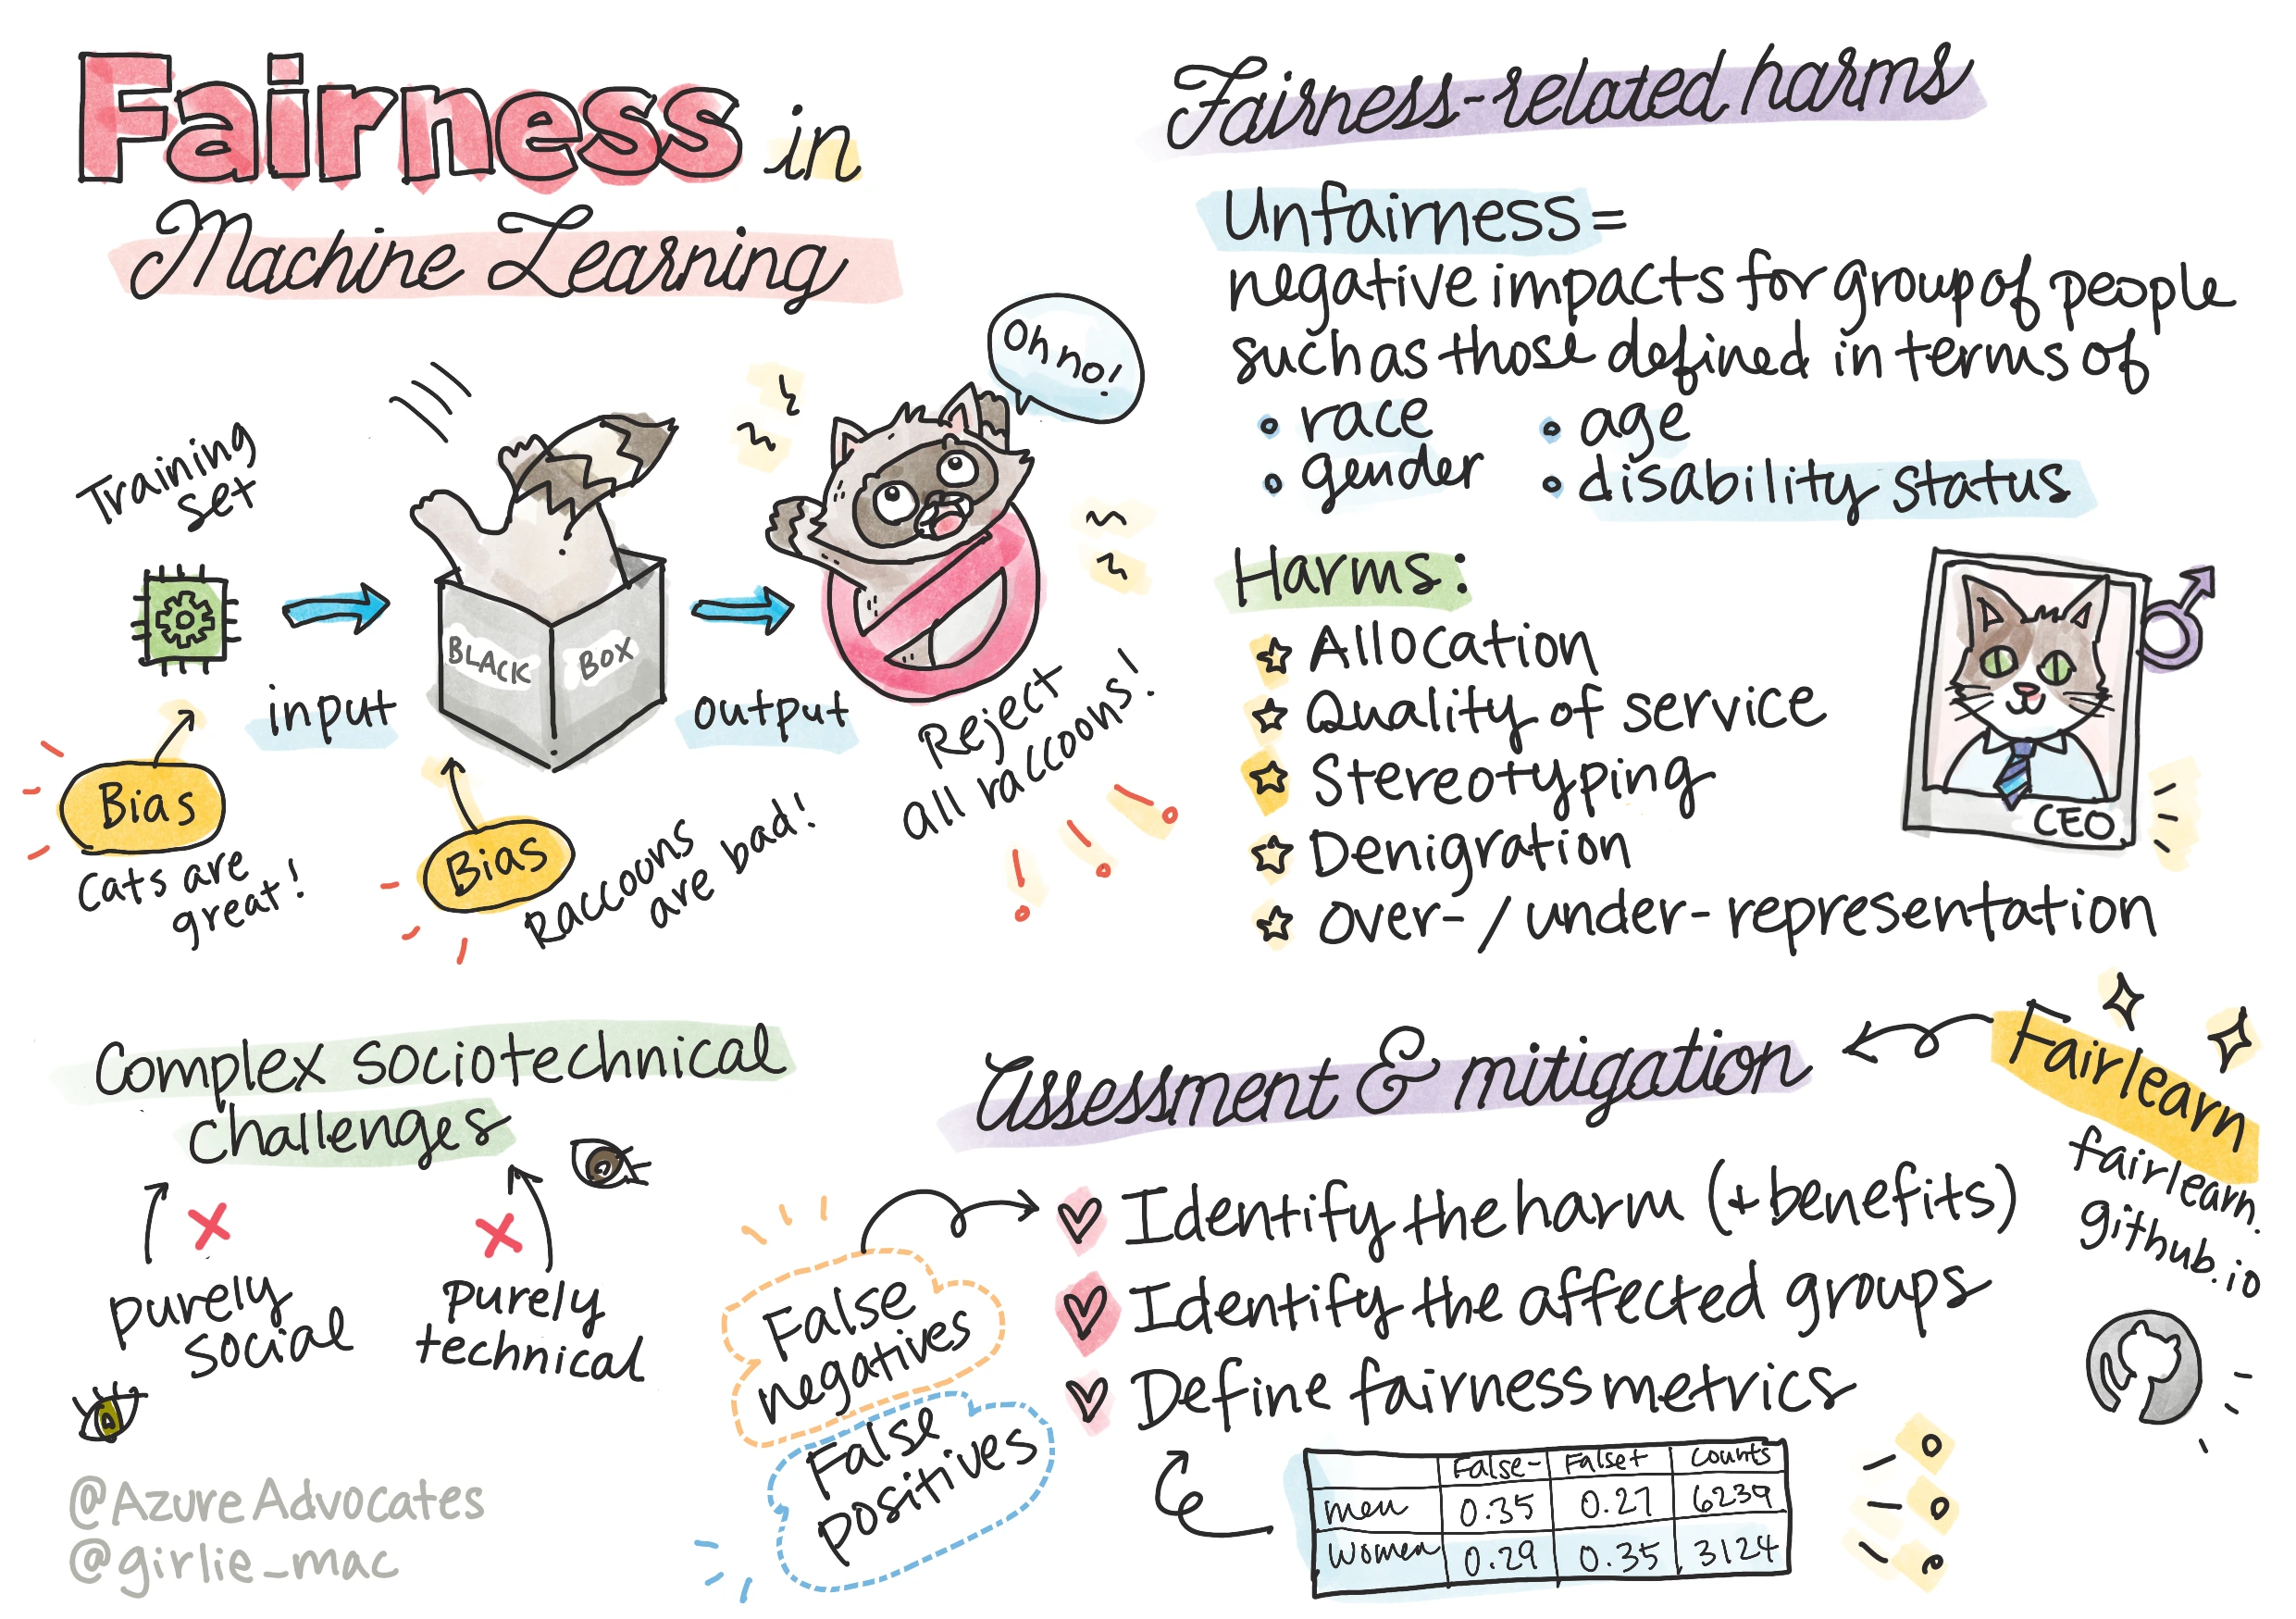 Fairness in
Machine Learning
Training
set
input
BLACK BOX
output
Oh no!
Reject
all raccoons!
Bias
Cats are
great!
Bias
Raccoons
are bad!
Fairness-related harms
Unfairness =
negative impacts for group of people
such as those defined in terms of
• race • age
• gender • disability status
Harms:
☆ Allocation
☆ Quality of service
☆ Stereotyping
☆ Denigration
☆ over- / under- representation
CEO
Complex sociotechnical
challenges
purely
social
purely
technical
@AzureAdvocates
@girlie_mac
Assessment & mitigation
Fairlearn
fairlearn.
github.io
Identify the harm (+ benefits)
Identify the affected groups
Define fairness metrics
False
negatives
False
positives
False- False+ Counts
men 0.35 0.27 6239
Women 0.29 0.35 3124